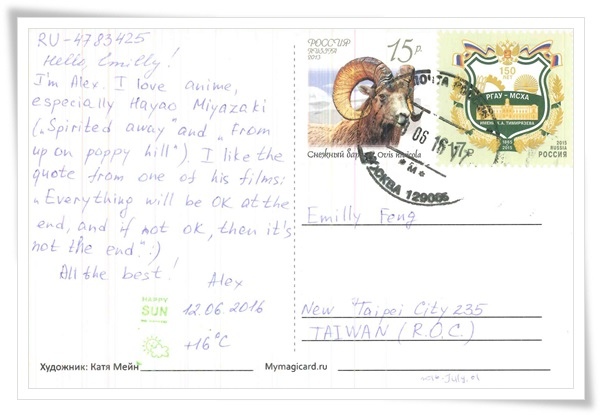 RU-4783425
Hello, Emilly!
I'm Alex. I love anime,
especially Hayao Miyazaki
(„Spirited away" and „From
up on poppy hill"). I like the
quote from one of his films:
„Everything will be OK at the
end, and if not OK, then it's
not the end." :)
All the best!
Alex
HAPPY
SUN
12.06.2016
+16°C
Художник: Катя Мейн
Mymagicard.ru
РОССИЯ
RUSSIA
2013
15 р
Снежный баран Ovis nivicola
150
ЛЕТ
РГАУ - МСХА
ИМЕНИ К.А. ТИМИРЯЗЕВА
1865
2015
17р
2015
RUSSIA
РОССИЯ
ПОЧТА
06 16
МОСКВА 129085
Emilly Feng
New Taipei City 235
TAIWAN (R.O.C.)
July.01